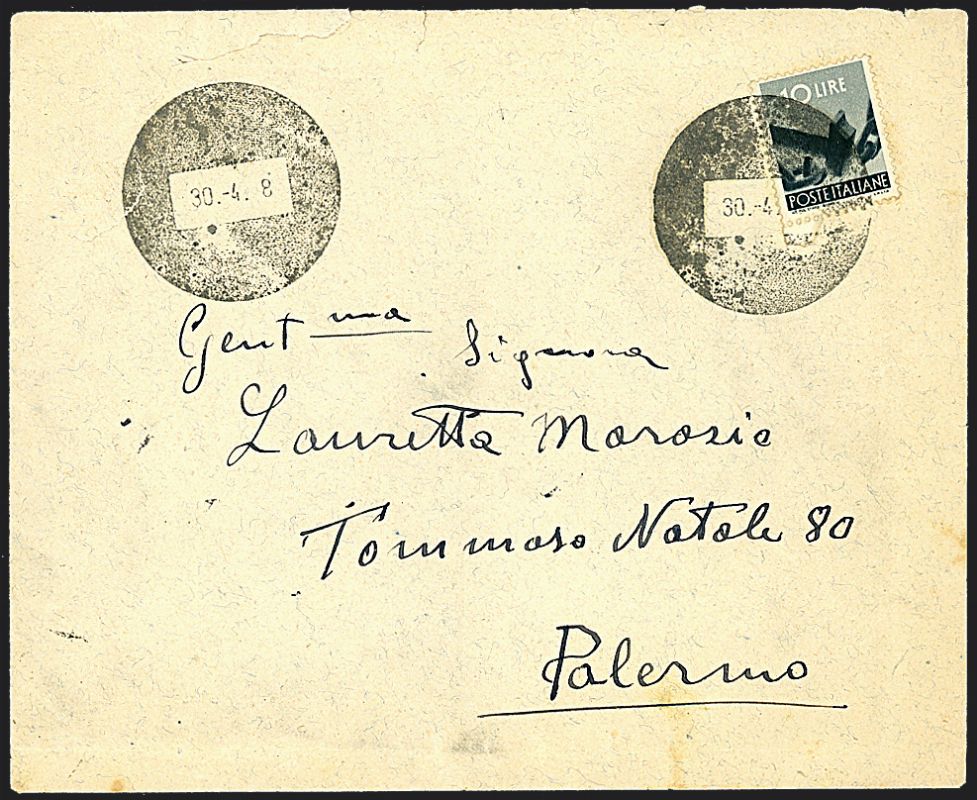 30.-4. 8
30.-4.
10 LIRE
POSTE ITALIANE
Gent ma Signora
Lauretta Marasio
Tommaso Natale 80
Palermo